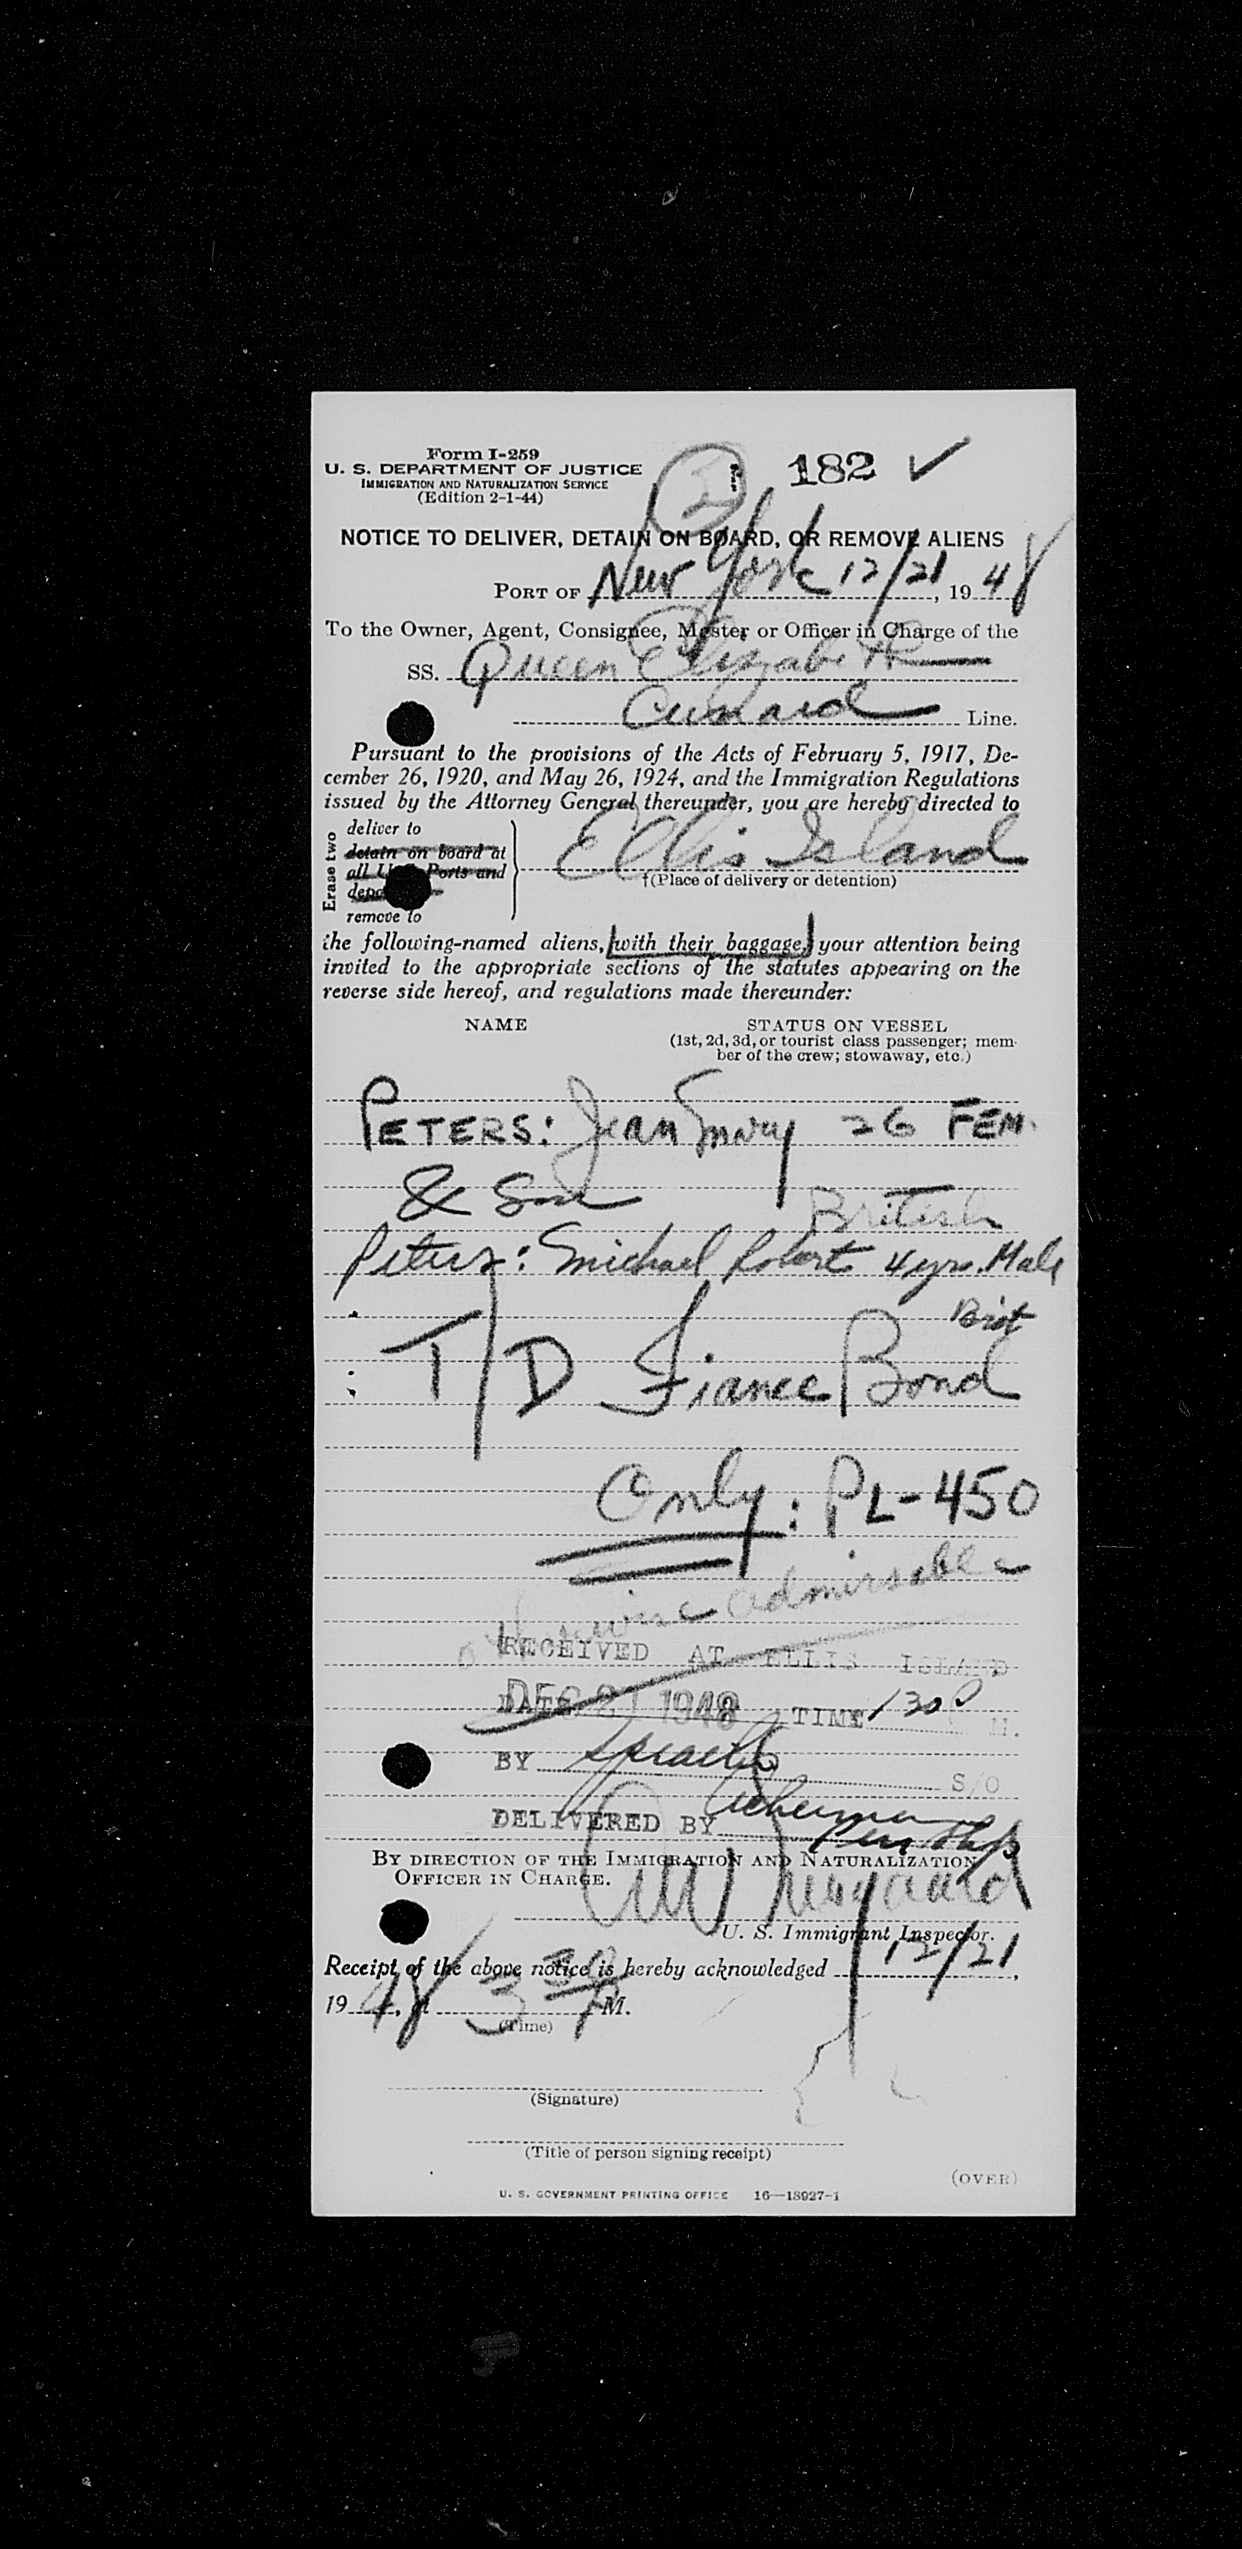 Form I-259
U. S. DEPARTMENT OF JUSTICE
IMMIGRATION AND NATURALIZATION SERVICE
(Edition 2-1-44)
182 ✓
NOTICE TO DELIVER, DETAIN ON BOARD, OR REMOVE ALIENS
PORT OF New York 12/21, 1948
To the Owner, Agent, Consignee, Master or Officer in Charge of the
SS. Queen Elizabeth
Cunard Line.
Pursuant to the provisions of the Acts of February 5, 1917, De-
cember 26, 1920, and May 26, 1924, and the Immigration Regulations
issued by the Attorney General thereunder, you are hereby directed to
Erase two
deliver to
detain on board at
all U. S. Ports and
remove to
Ellis Island
†(Place of delivery or detention)
the following-named aliens, with their baggage, your attention being
invited to the appropriate sections of the statutes appearing on the
reverse side hereof, and regulations made thereunder:
NAME
STATUS ON VESSEL
(1st, 2d, 3d, or tourist class passenger; mem-
ber of the crew; stowaway, etc.)
PETERS: Jean Mary 26 FEM.
& Son British
Peters: Michael Robert 4 yrs. Male
Brit
: T/D Fiance Bond
Only: PL-450
otherwise admissable
RECEIVED AT ELLIS ISLAND
DATE DEC 21 1948 TIME 130 P M.
BY S/O
DELIVERED BY
BY DIRECTION OF THE IMMIGRATION AND NATURALIZATION
OFFICER IN CHARGE.
U. S. Immigrant Inspector.
Receipt of the above notice is hereby acknowledged 12/21,
1948, at 3 30 P M.
(Time)
(Signature)
(Title of person signing receipt)
(OVER)
U. S. GOVERNMENT PRINTING OFFICE 16—18927-1